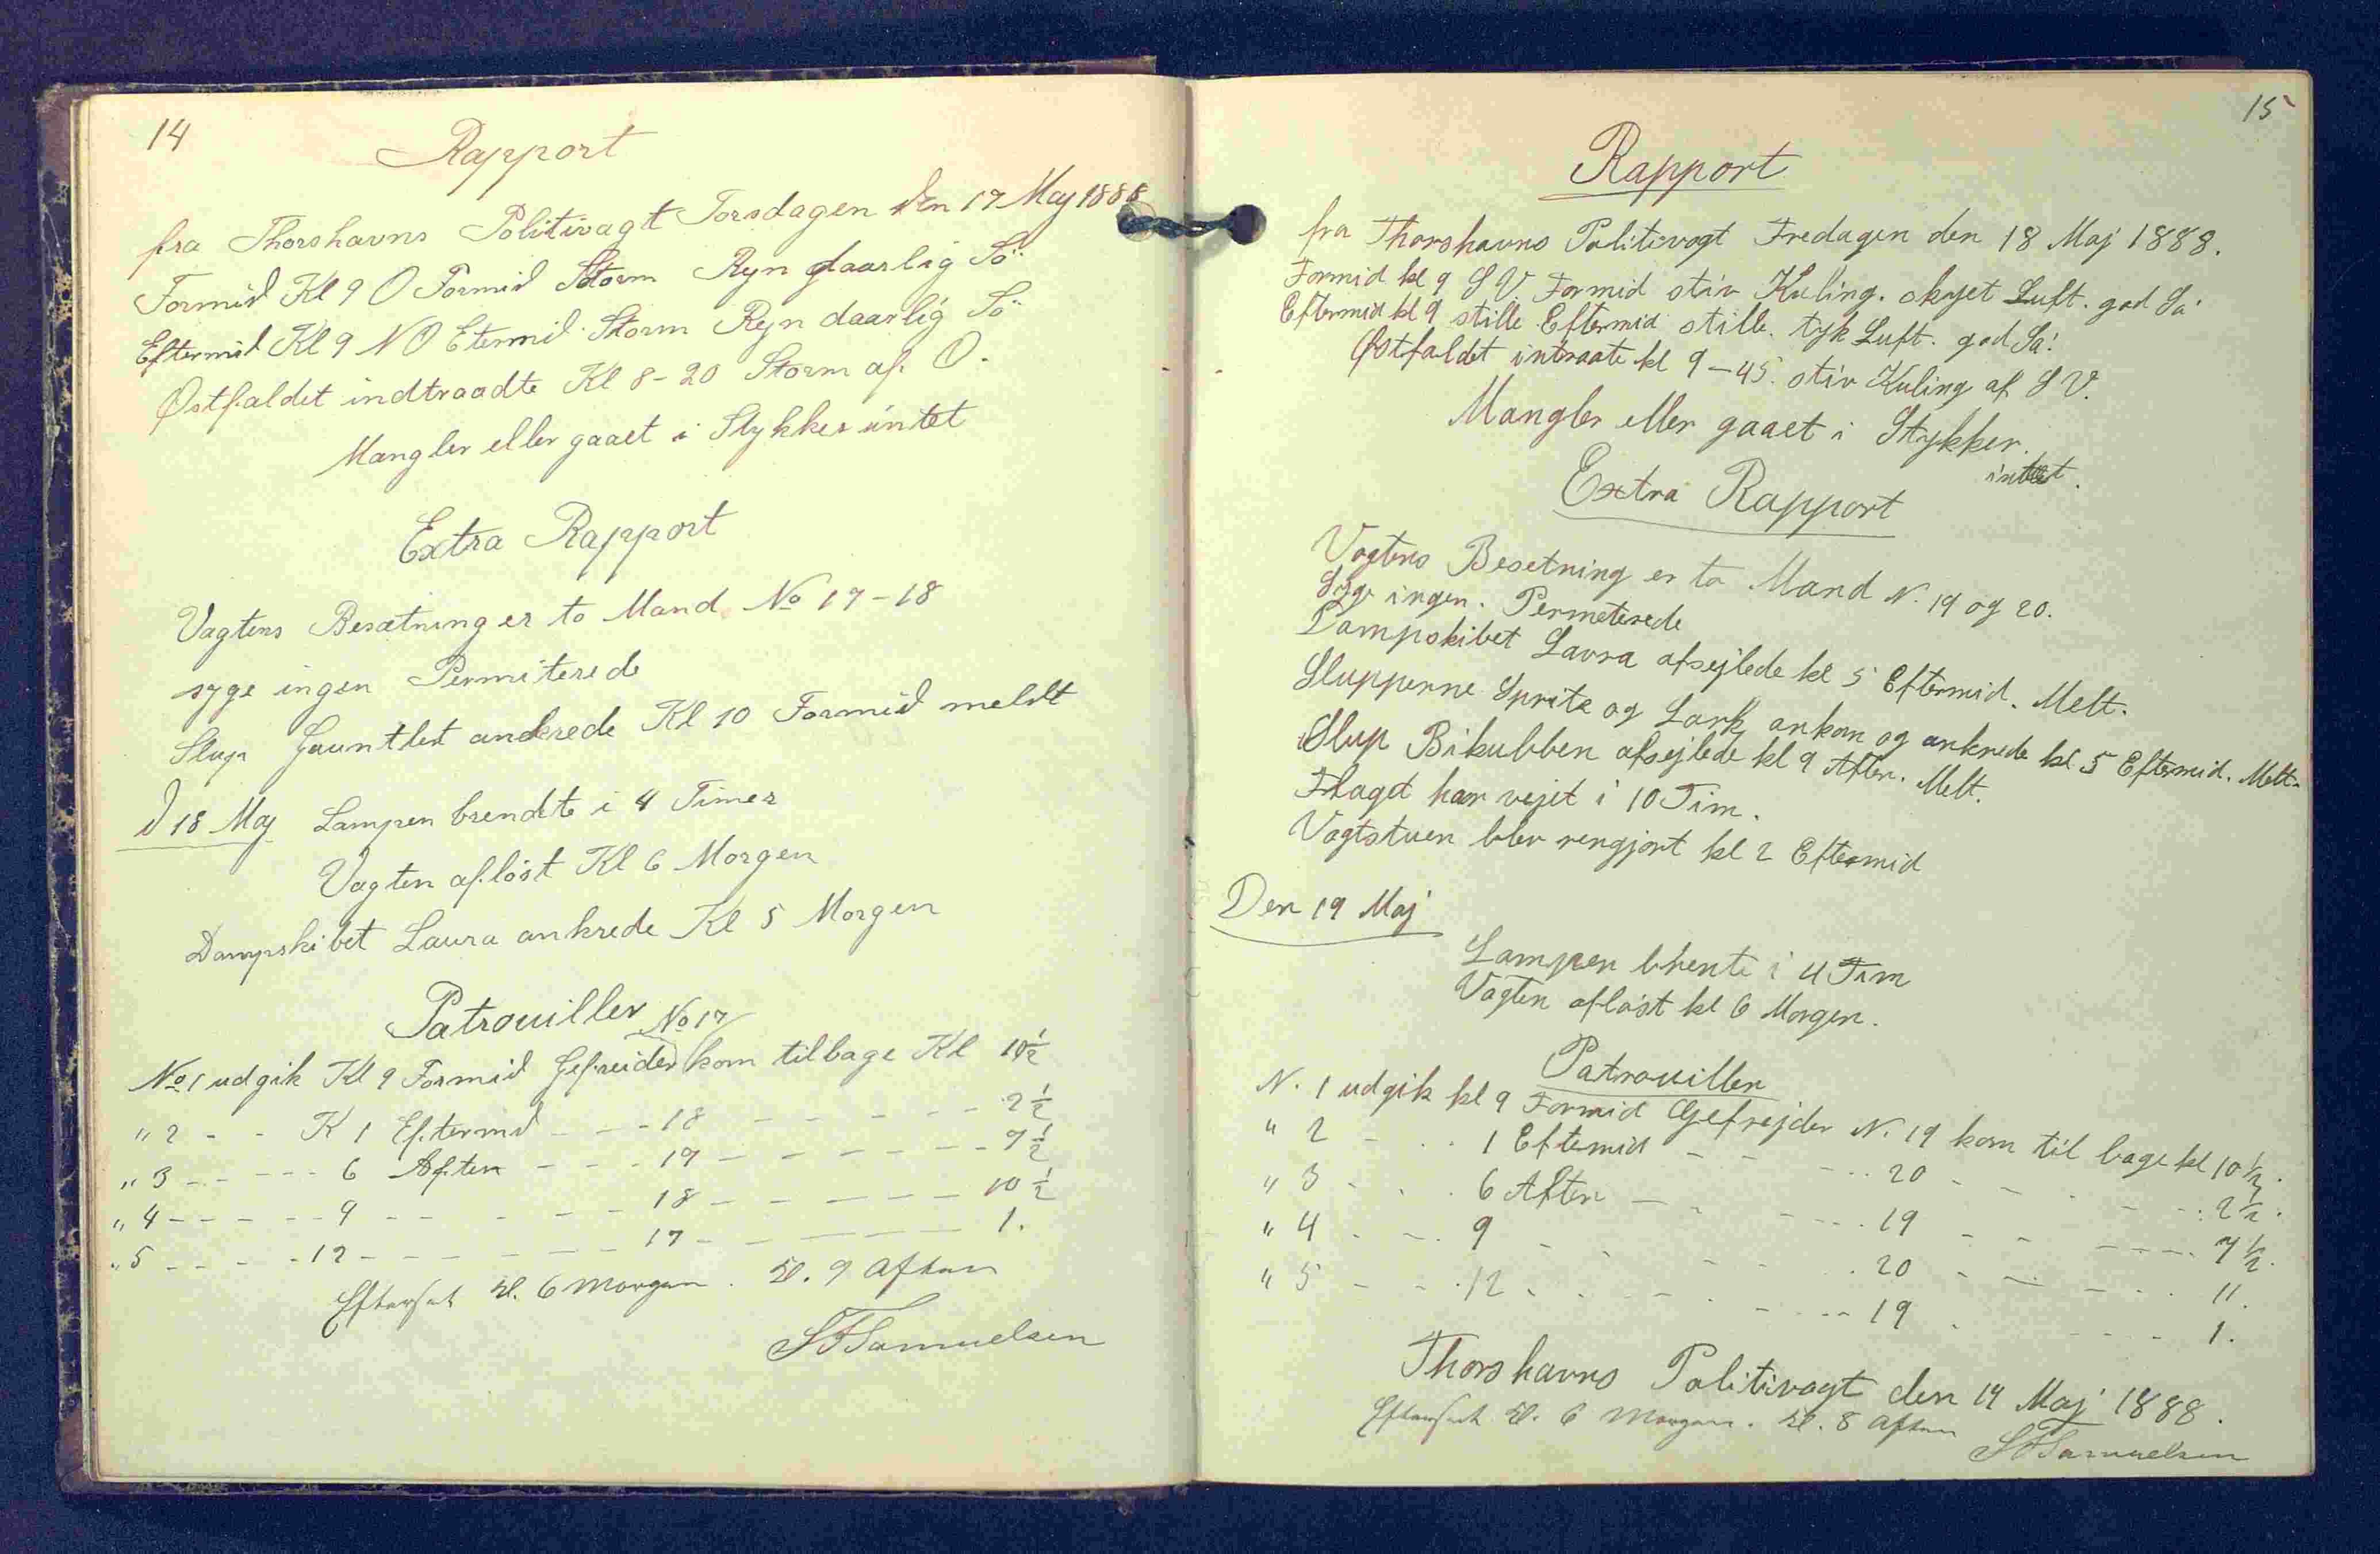 14
Rapport
fra Thorshavns Politivagt Torsdagen den 17 Maj 1888
Formid Kl 9 O Formid Storm Ryn daarlig Sö
Eftermid Kl 9 NO Etermid Storm Rejn daarlig Sö
Østfaldet indtraadte Kl 8-20 Storm af O.
Mangler eller gaaet i Stykker intet
Extra Rapport
Vagtens Besætning er to Mand No 17-18
syge ingen Permiterede
Slup Gauntlet ankrede Kl 10 Formid meldt
d 18 Maj Lampen brendte i 4 Timer
Vagten aflöst Kl 6 Morgen
Dampskibet Laura ankrede Kl 5 Morgen
Patrouiller
No 17
No 1 udgik Kl 9 Formid Gefreider kom tilbage Kl 10½
" 2 - - K 1 Eftermd - - - 18 - - - - - - 2 ½
" 3 - - - - - 6 Aften - - - 17 - - - - - - 7 ½
" 4 - - - - - 9 - - - - - - 18 - - - - - 10 ½
" 5 - - - - - 12 - - - - - - 17 - - - - - 1.
Efterset Kl. 6 Morgen. Kl. 9 Aften
SFSamuelsen
15
Rapport
fra Thorshavns Politivagt Fredagen den 18 Maj 1888.
Formid kl 9 S V Formid stiv Kuling. skyet Luft. god Sö
Eftermid kl 9 stille Eftermid stille. tyk Luft. god Sö.
Østfaldet intraate kl 9-45. stiv Kuling af S V.
Mangler eller gaaet i Stykker.
intet.
Extra Rapport
Vagtens Besetning er to Mand N. 19 og 20.
Syge ingen. Permeterede
Dampskibet Lavra afsejlede kl 5 Eftermid. Melt.
Slupperne Sprite og Lark ankom og ankrede kl 5 Eftermid. Melt.
Slup Bikubben afsejlede kl 9 Aften. Melt.
Flaget har vejet i 10 Tim.
Vagtstuen blev rengjort kl 2 Eftermid
Den 19 Maj
Lampen brente i 4 Tim
Vagten afløst kl 6 Morgen.
Patrouiller
N. 1 udgik kl 9 Formid Gefrejder N. 19 kom til bage kl 10 ½.
" 2 - - - 1 Eftemid - - - - 20 - - - - - 2 ½.
" 3 - - - 6 Aften - - - - 19 - - - - - 7 ½.
" 4 - - - 9 - - - - - 20 - - - - - 11.
" 5 - - - 12 - - - - - 19 - - - - - 1.
Thorshavns Politivagt den 19 Maj 1888.
Efterset Kl. 6 Morgen. Kl. 8 Aften
SFSamuelsen